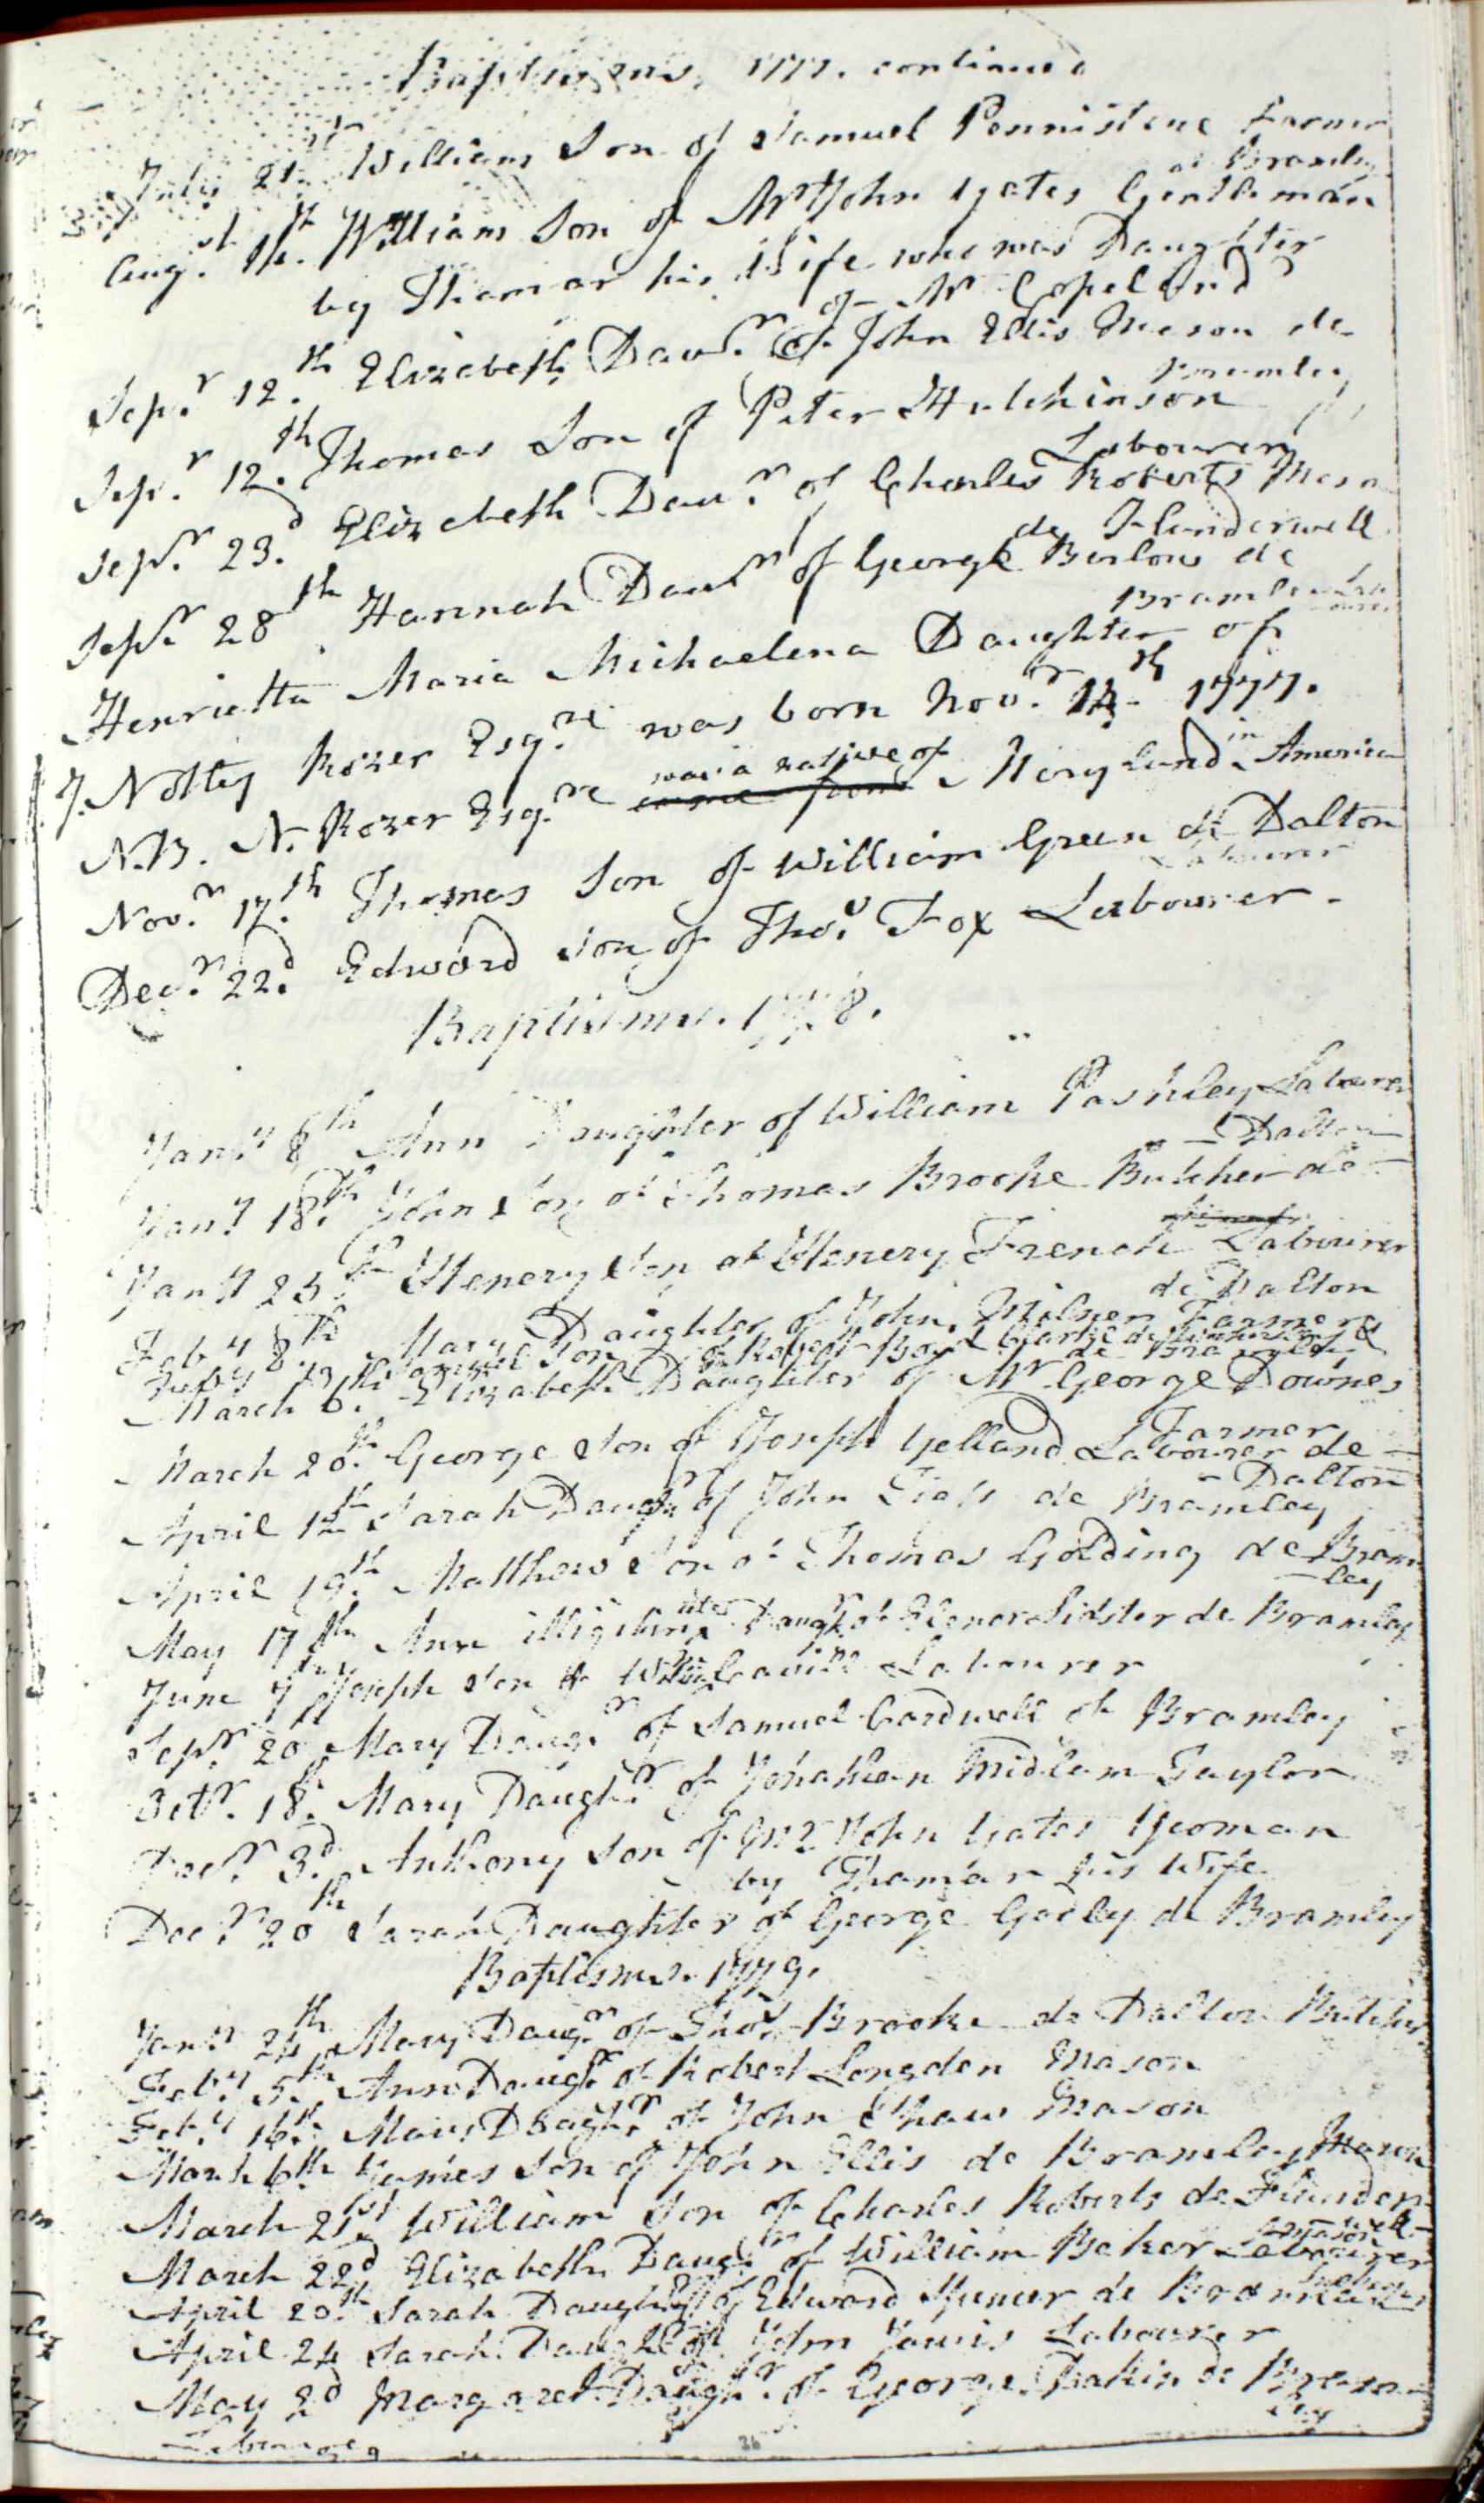 Baptisms, 1777. continued
July 21st William Son of Samuel Pennistone Farmer
at Bramley
Augst 1st. William Son of Mr John Yates Gentleman
by Thamar his Wife who was Daughter
of Mr Copeland
Sepr. 12th. Elizabeth Daur. of John Ellis Mason de
Bramley
Sepr. 12th. Thomas Son of Peter Hutchinson
Labourer
Sepr. 23d. Elizabeth Daur. of Charles Roberts Mason
de Flanderwell
Sepr. 28th. Hannah Daur. of George Barlow de
Bramley
Henrietta Maria Michaelena Daughter of
Notley Rozer Esqre. was born Novr. 14th 1777.
N.B. N. Rozer Esqre was a native of Maryland in America
came from
Novr. 17th. Thomas Son of William Green de Dalton
Labourer
Decr. 22d. Edward Son of Thos. Fox Labourer.
Baptisms. 1778.
Jany 8th Ann Daughter of William Pashley Labourer
Dalton
Jany 18th. John Son of Thomas Brooke Butcher de
Jany 25th Henery Son of Henery French Labourer
de Dalton
Feby 8th. Mary Daughter of John Milner Farmer
de Bramley
March 6. Elizabeth Daughter of Mr George Downes
Farmer
March 20th. George Son of Joseph Yelland Labourer de
Dalton
April 12th Sarah Daugr. of John de Bramley
April 19th. Matthew Son of Thomas Golding de Bram
ley
May 17th Ann illigitimate Daugr. of Elenor Sidster de Bramley
June 7th Joseph Son of Willm Labourer
Sepr 20th Mary Daugr. of Samuel Cardwell of Bramley
Octr. 18th. Mary Daughr. of Jonathan Midlam Taylor
Decr. 3d. Anthony Son of Mr John Yates Yeoman
by Thamar his Wife
Decr. 20th Sarah Daughter of George de Bramley
Baptisms. 1779.
Jany 24th Mary Daugr. of Thos. Brooke de Dalton Butcher
Feby 5th. Ann Daugr. of Robert Longden Mason
Feby 16th. Mary Daughr. of John Shaw Mason
March 6th James Son of John Ellis de Bramley Mason
March 21st. William Son of Charles Roberts de Flander
well
March 22d Elizabeth Daugr. of William Baker Labourer
April 20th Sarah Daughtr of Edward de Bramley
April 24 Sarah Daughr of John Labourer
May 2d Margaret Daughr. of George Deakin de Bram
ley
Labourer